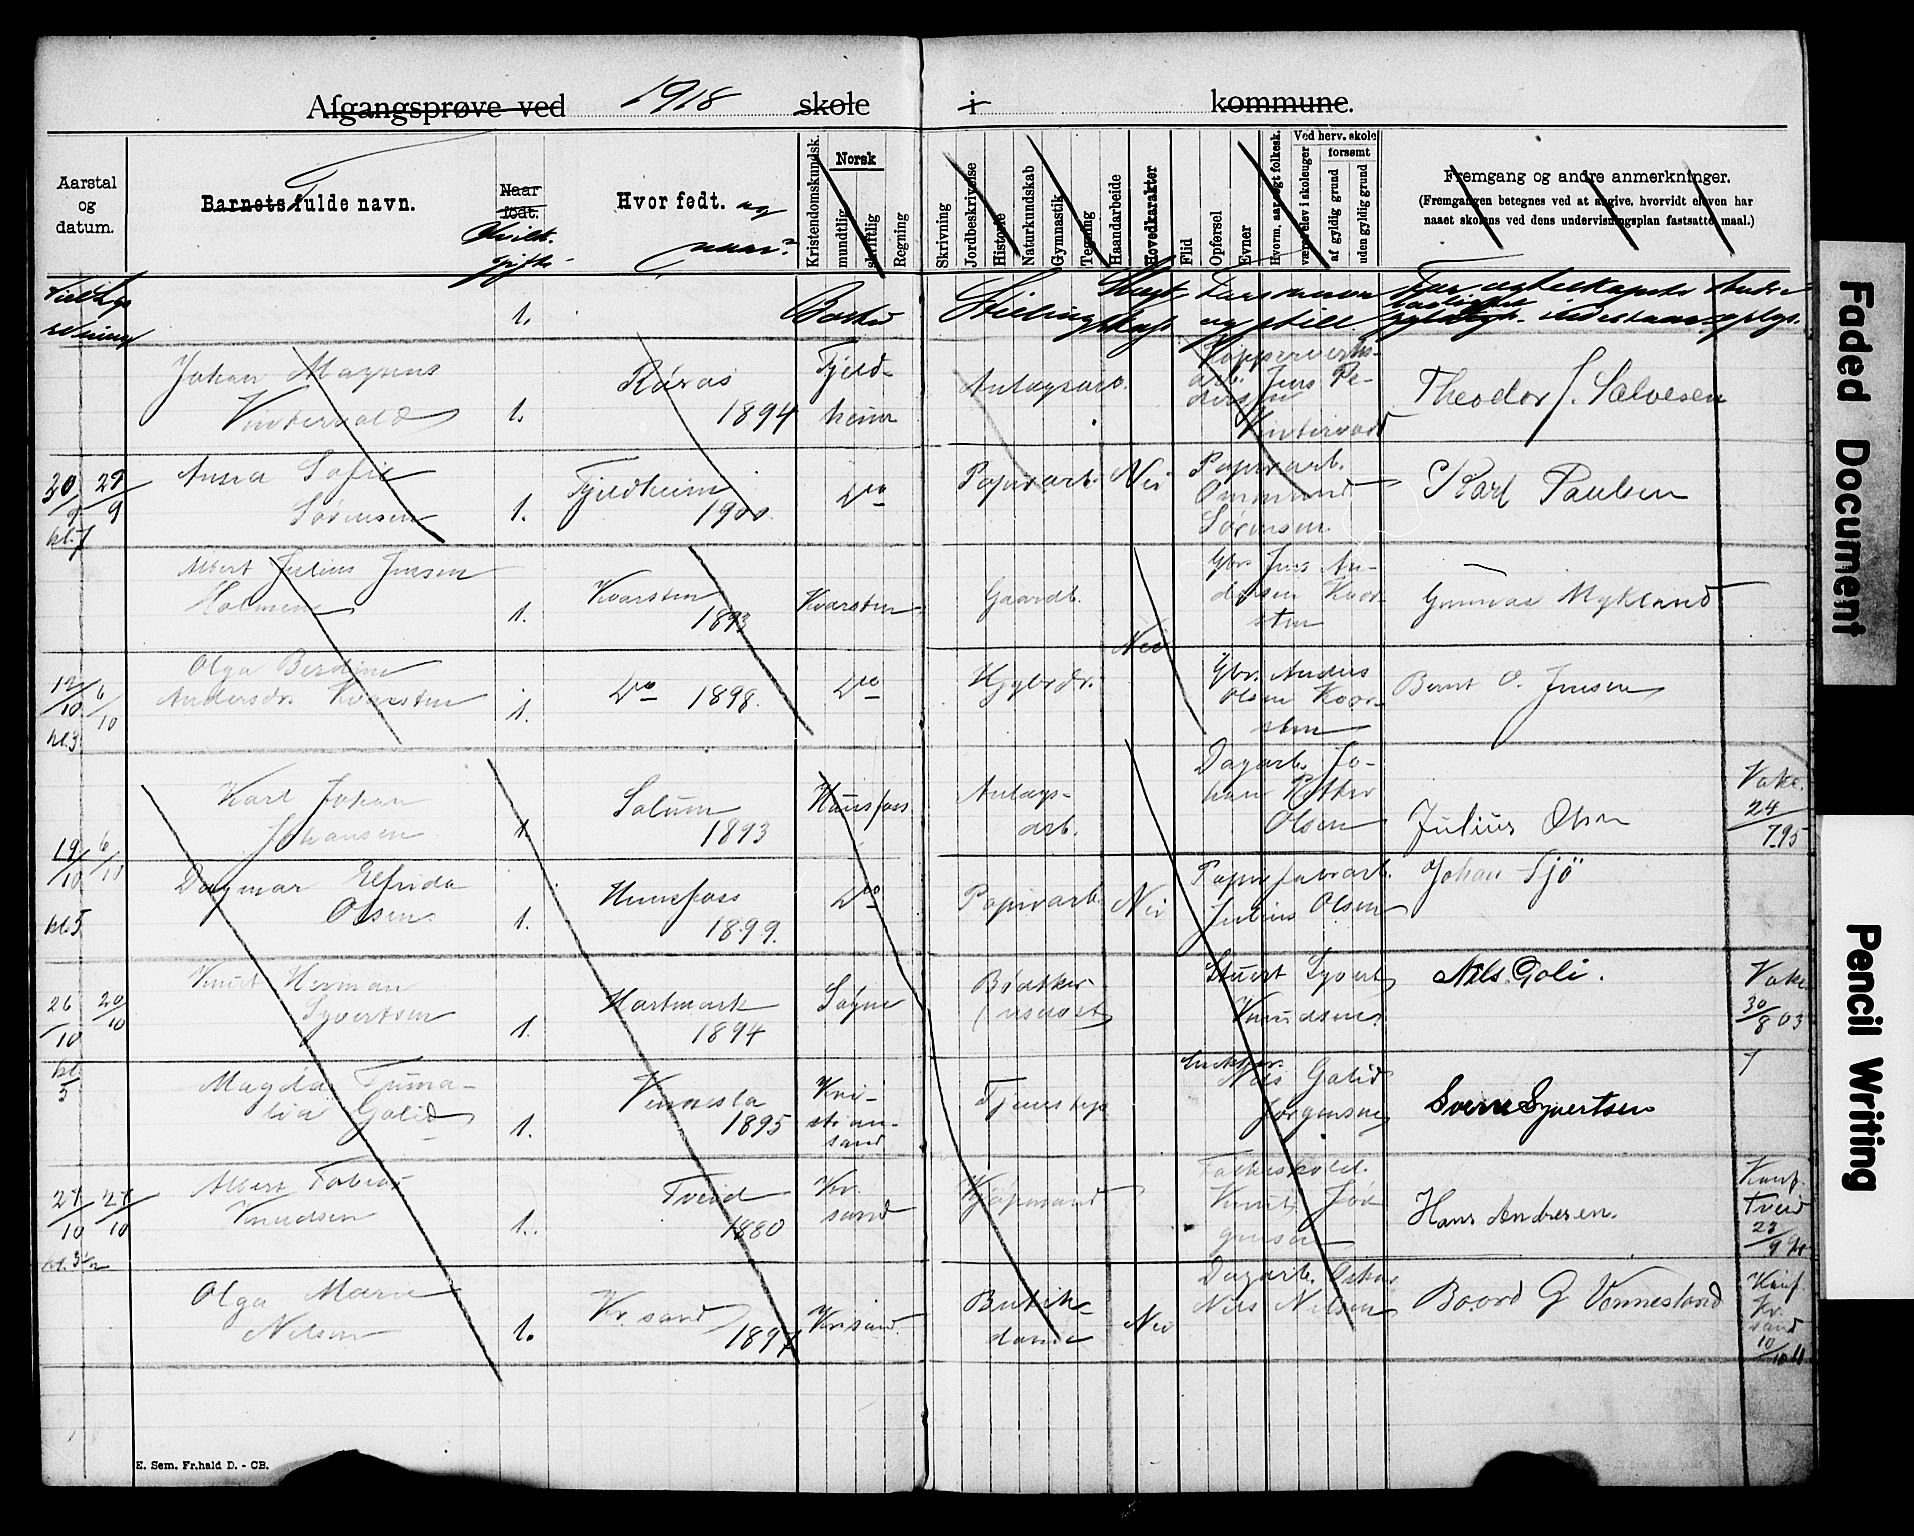 Afgangsprøve ved 1918 skole i kommune.
Aarstal og datum.
Barnets fulde navn.
Naar født.
Hvor født. og naar?
Kristendomskundsk.
Norsk
mundtlig
skriftlig
Regning
Skrivning
Jordbeskrivelse
Historie
Naturkundskab
Gymnastik
Tegning
Haandarbeide
Hovedkarakter
Flid
Opførsel
Evner
Hvorm. aar søgt folkesk.
Ved herv. skole
forsømt
af gyldig grund
uden gyldig grund
Fremgang og andre anmerkninger.
(Fremgangen betegnes ved at angive, hvorvidt eleven har
naaet skolens ved dens undervisningsplan fastsatte maal.)
1. Bosted Stilling
Johan Magnus
Vintervold
1.
Røros
1894
Fjeld-
heim
Anlægsarb.
Jens Pe-
dersen
Vintervold
Theodor J. Salvesen
30/9 29/9
kl. 7
Anna Sofie
Sørensen
1.
Fjeldheim
1900
Do
Papirarb.
Nei
Papirarb.
Ommund
Sørensen
Karl Paulsen
Albert Julius Jensen
Holmen
1.
Kvarsten
1893
Kvarsten
Gaardb.
Gbr. Jens An-
dersen Kvar-
sten
Gunnar Mykland
12/10 6/10
kl. 3
Olga Berdine
Andersdr. Kvarsten
1.
Do 1898.
Do
Nei
Gbr. Anders
Olsen Kvar-
sten
Bernt O. Jensen
19/10 6/10
kl. 5
Karl Johan
Johansen
1.
Solum
1893
Hunsfoss
Anlægs-
arb.
Dagarb. Jo-
han Petter
Olsen
Julius Olsen
Vakc.
24/7 95
Dagmar Elfrida
Olsen
1.
Hunsfoss
1899.
Do
Papirarb.
Nei
Papirfabrarb.
Julius Olsen
Johan Sjö
26/10 20/10
kl. 5
Knut Herman
Syvertsen
1.
Hartmark
1894
Søgne
Bødker
Syvert
Knudsen
Nils Goli.
Vakc.
30/8 03
Magda
Golid
1.
Vennesla
1895
Kri-
stian-
sand
Nils Golid
Jørgensen
Sven Syvertsen
27/10 27/10
kl. 3 1/2
Albert Tobias
Knudsen
1.
Tveid
1880
Kr.
sand
Kjøpmand
Knut Jør-
gensen
Hans Andresen.
Konf.
Tveid
Olga Marie
Nilsen
1.
Kr.sand
1897
Kr.sand
Butik-
dame
Nei
Dagarb. Oskar
Nils Nilsen
Baard G Vennesland
Konf.
Kr.
sand
10/10 11
E. Sem. Fr.hald D. - CB.
Faded Document
Pencil Writing